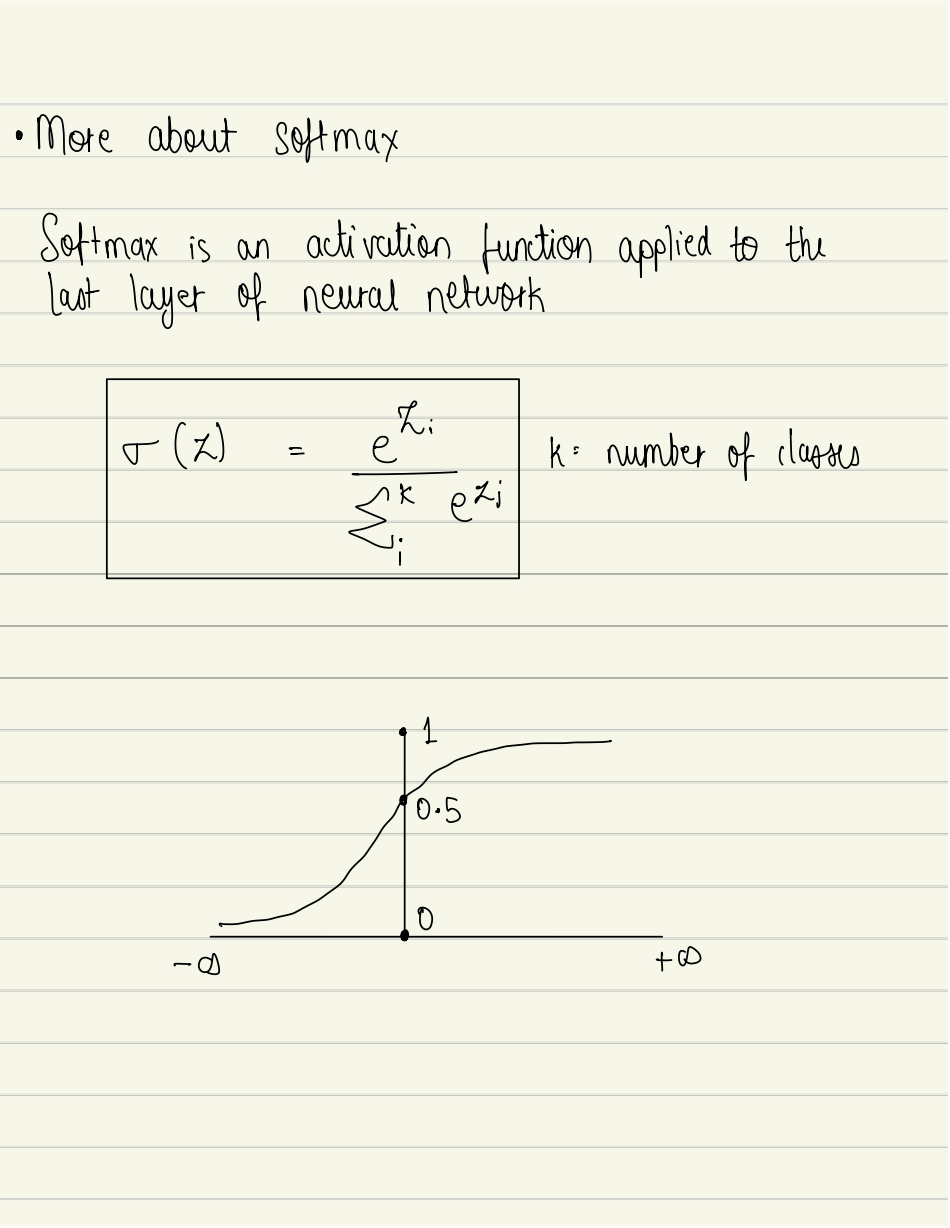 • More about softmax
Softmax is an activation function applied to the
last layer of neural network
σ(z) = e^{z_i} / Σ_i^k e^{z_j}    k = number of classes
1
0.5
0
-∞ +∞